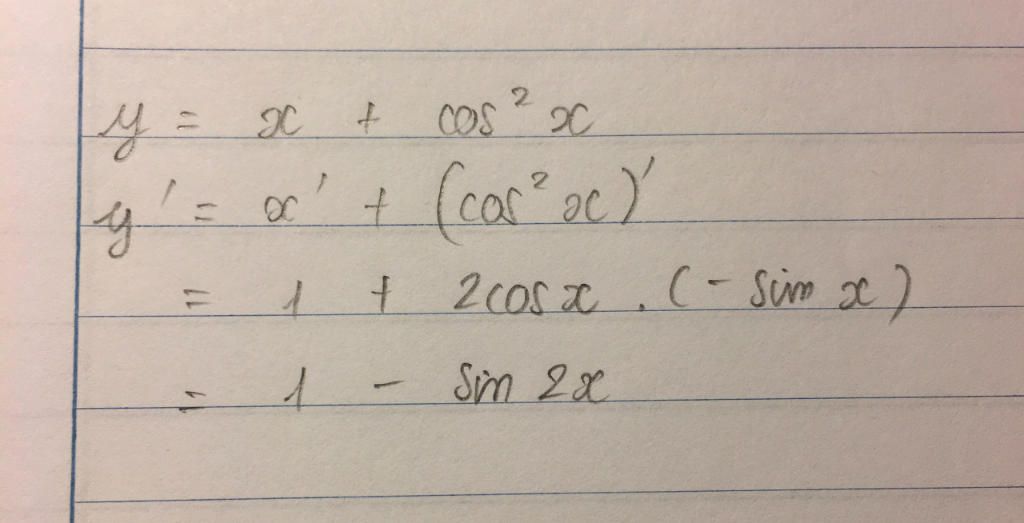 y = x + cos² x
y' = x' + (cos² x)'
= 1 + 2cos x . (- sin x)
= 1 - sin 2x